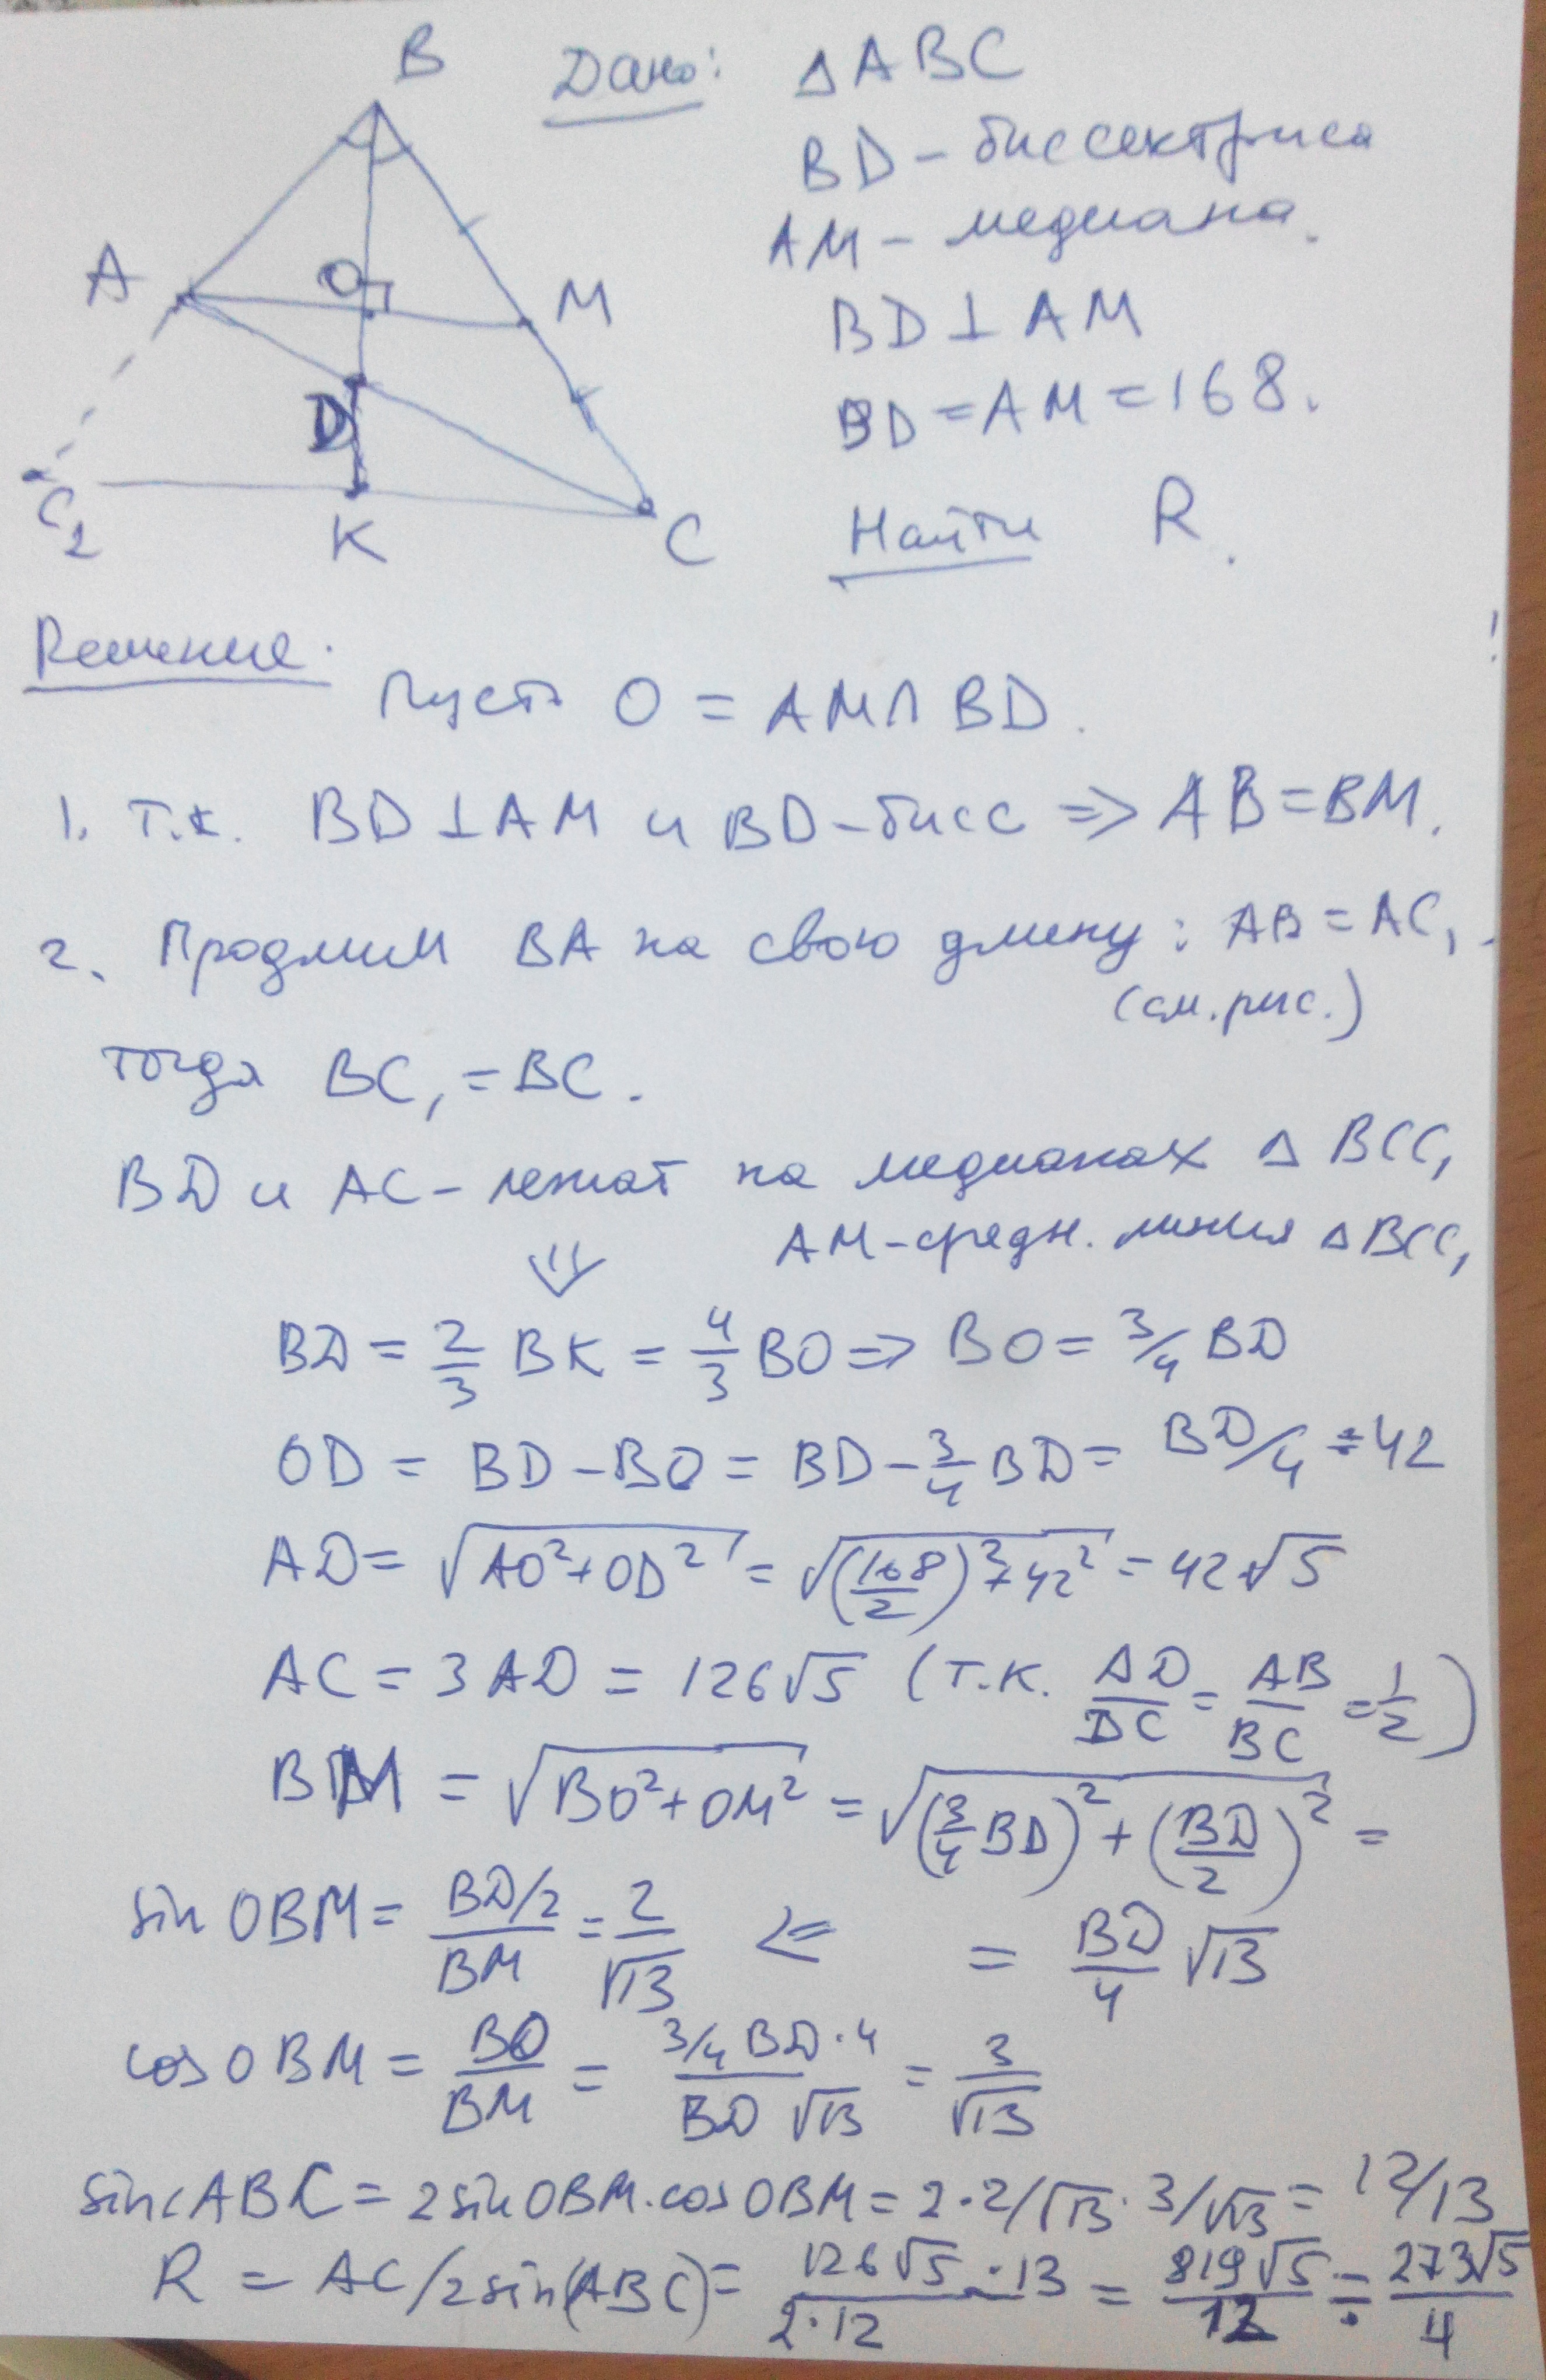 B
Дано: △ABC
BD – биссектриса
AM – медиана.
A
O
M
BD ⊥ AM
BD = AM = 168.
D
C₁
K
C
Найти R.
Решение.
!
Пусть O = AM ∩ BD.
1. т.к. BD ⊥ AM и BD – бисс ⇒ AB = BM.
2. Продлим BA на свою длину: AB = AC₁.
(см. рис.)
тогда BC₁ = BC.
BD и AC – лежат на медианах △ BCC₁
AM – средн. линия △BCC₁
⇓
BD = 2/3 BK = 4/3 BO ⇒ BO = 3/4 BD
OD = BD – BO = BD – 3/4 BD = BD/4 = 42
AD = √(AO² + OD²) = √((168/2)² + 42²) = 42√5
AC = 3AD = 126√5 (т.к. AD/DC = AB/BC = 1/2)
BM = √(BO² + OM²) = √((3/4 BD)² + (BD/2)²) =
sin OBM = (BD/2)/BM = 2/√13 ⇐ = BD/4 √13
cos OBM = BO/BM = (3/4 BD · 4)/(BD √13) = 3/√13
sin ∠ABC = 2 sin OBM · cos OBM = 2 · 2/√13 · 3/√13 = 12/13
R = AC/2sin(ABC) = (126√5 · 13)/(2·12) = 819√5/12 = 273√5/4